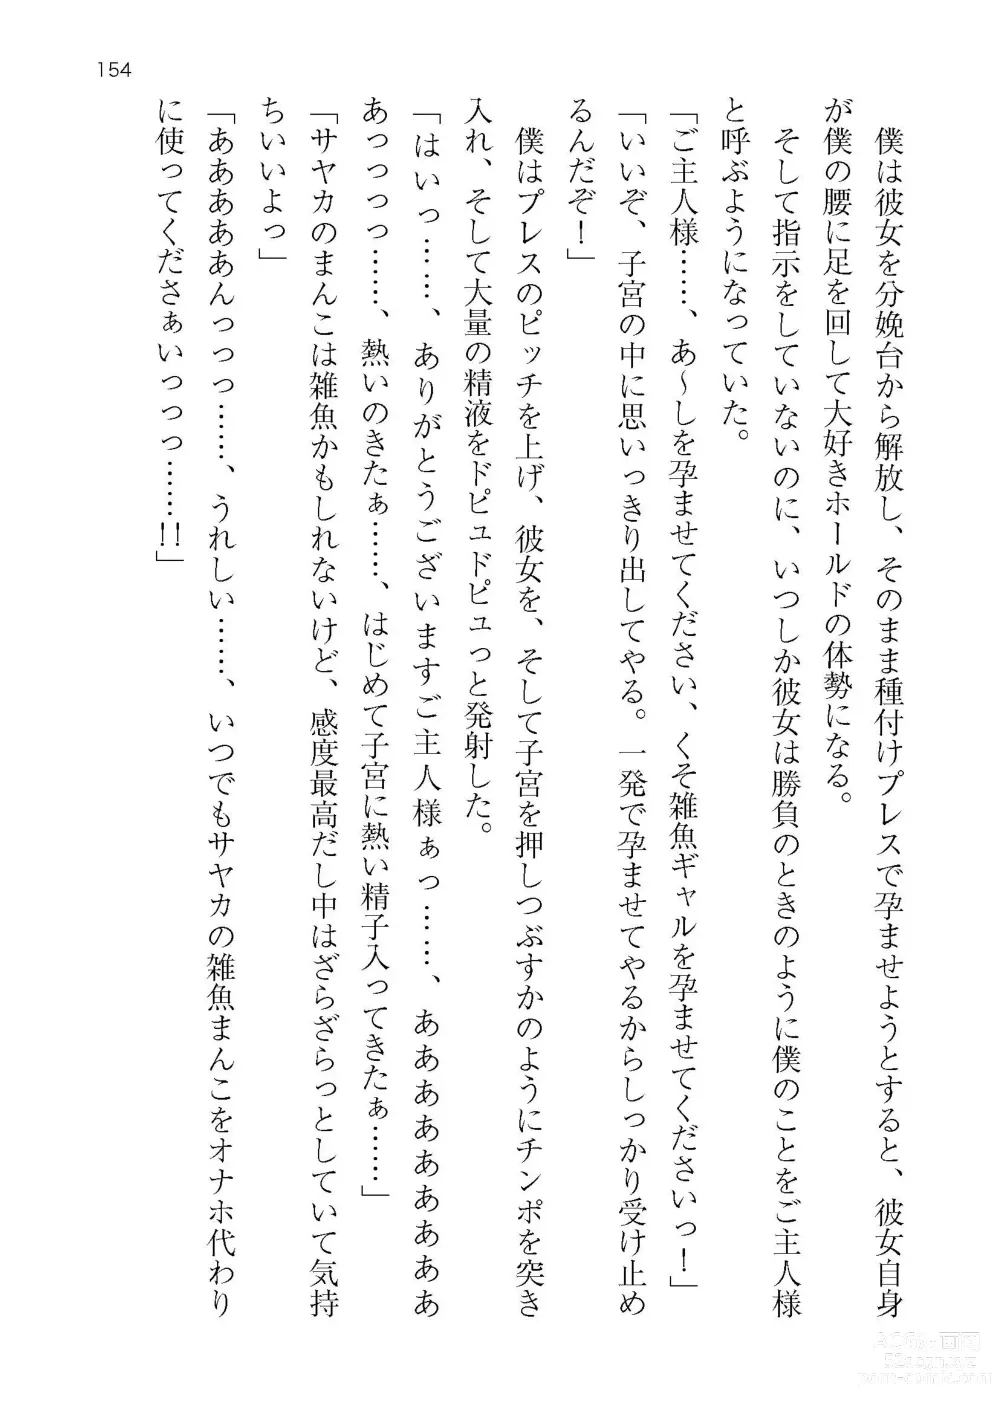 154
僕は彼女を分娩台から解放し、そのまま種付けプレスで孕ませようとすると、彼女自身
が僕の腰に足を回して大好きホールドの体勢になる。
そして指示をしていないのに、いつしか彼女は勝負のときのように僕のことをご主人様
と呼ぶようになっていた。
「ご主人様……、あ~しを孕ませてください、くそ雑魚ギャルを孕ませてくださいっ！」
「いいぞ、子宮の中に思いっきり出してやる。一発で孕ませてやるからしっかり受け止め
るんだぞ！」
僕はプレスのピッチを上げ、彼女を、そして子宮を押しつぶすかのようにチンポを突き
入れ、そして大量の精液をドピュドピュっと発射した。
「はいっ……、ありがとうございますご主人様ぁっ……、ああああああああああ
あっっっっ……、熱いのきたぁ……、はじめて子宮に熱い精子入ってきたぁ……」
「サヤカのまんこは雑魚かもしれないけど、感度最高だし中はざらざらっとしていて気持
ちいいよっ」
「ああああああんっっっ……、うれしい……、いつでもサヤカの雑魚まんこをオナホ代わり
に使ってくださぁいっっっ……!!」